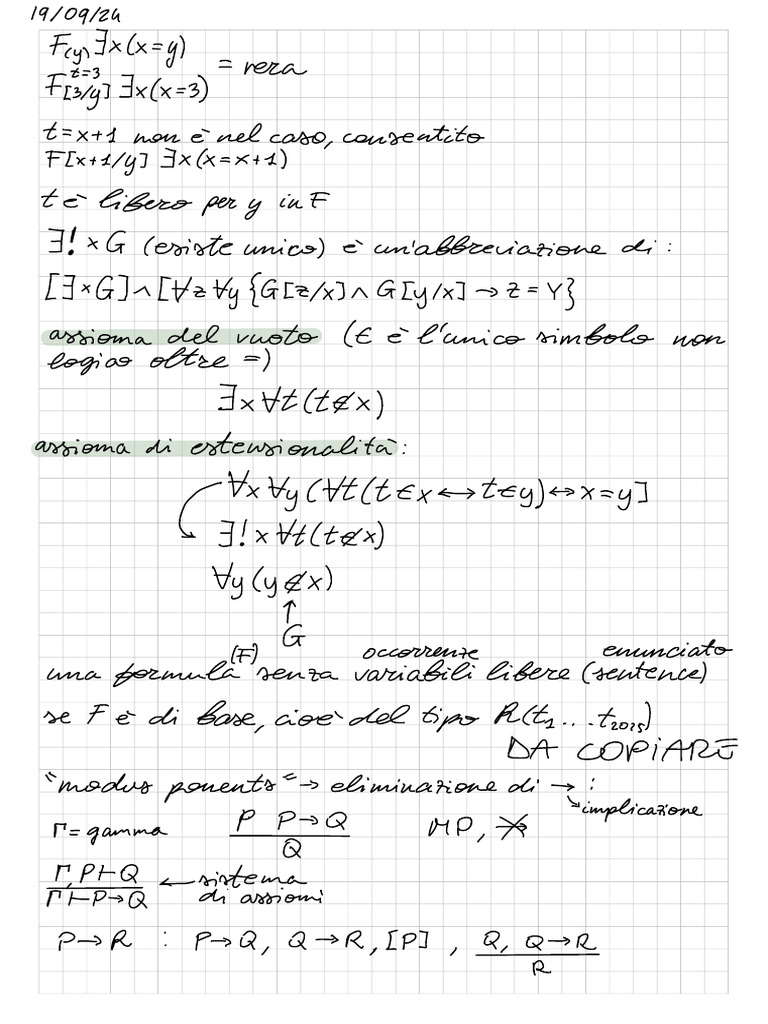 19/09/24
F(y) ∃x(x=y)
t=3
F[3/y] ∃x(x=3) = vera
t=x+1 non è nel caso, consentito
F[x+1/y] ∃x(x=x+1)
t è libero per y in F
∃!xG (esiste unico) è un'abbreviazione di:
[∃xG]∧[∀z∀y{G[z/x]∧G[y/x]→z=Y}
assioma del vuoto (∈ è l'unico simbolo non
logico oltre =)
∃x∀t(t∉x)
assioma di estensionalità:
∀x∀y(∀t(t∈x↔t∈y)↔x=y]
∃!x∀t(t∉x)
∀y(y∉x)
↑
G
(F) occorrenze enunciato
una formula senza variabili libere (sentence)
se F è di base, cioè del tipo R(t₁...t₂₀₂₅)
DA COPIARE
"modus ponents"→ eliminazione di → :
implicazione
Γ=gamma P P→Q MP,
Q
Γ,P⊢Q ← sistema
Γ⊢P→Q di assiomi
P→R : P→Q, Q→R, [P], Q, Q→R
R